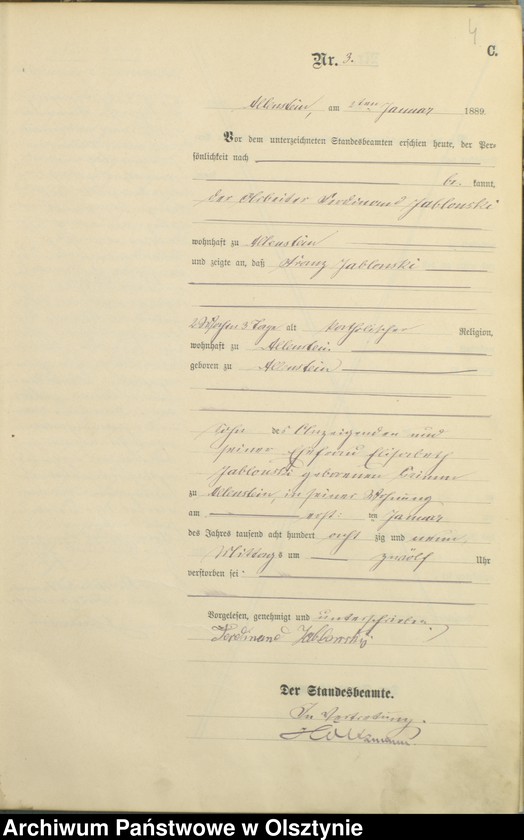 4
C.
Nr. 3.
Allenstein, am 2ten Januar 1889.
Vor dem unterzeichneten Standesbeamten erschien heute, der Per-
sönlichkeit nach
be kannt,
der Arbeiter Ferdinand Jablonski
wohnhaft zu Allenstein
und zeigte an, daß Franz Jablonski
2 Wochen 3 Tage alt katholischer Religion,
wohnhaft zu Allenstein
geboren zu Allenstein
Sohn des Anzeigenden und
seiner Ehefrau Elisabeth
Jablonski geborenen
zu Allenstein, in seiner Wohnung
am ersten Januar
des Jahres tausend acht hundert acht zig und neun
Mittags um zwölf Uhr
verstorben sei
Vorgelesen, genehmigt und unterschrieben.
Ferdinand Jablonski
Der Standesbeamte.
In Vertretung.
Archiwum Państwowe w Olsztynie